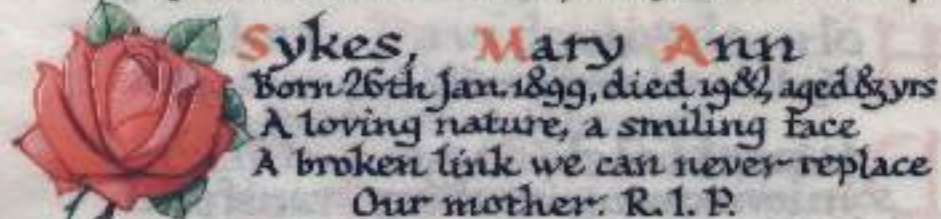 Sykes, Mary Ann
Born 26th Jan. 1899, died 1982, aged 83 yrs
A loving nature, a smiling face
A broken link we can never replace
Our mother. R.I.P.